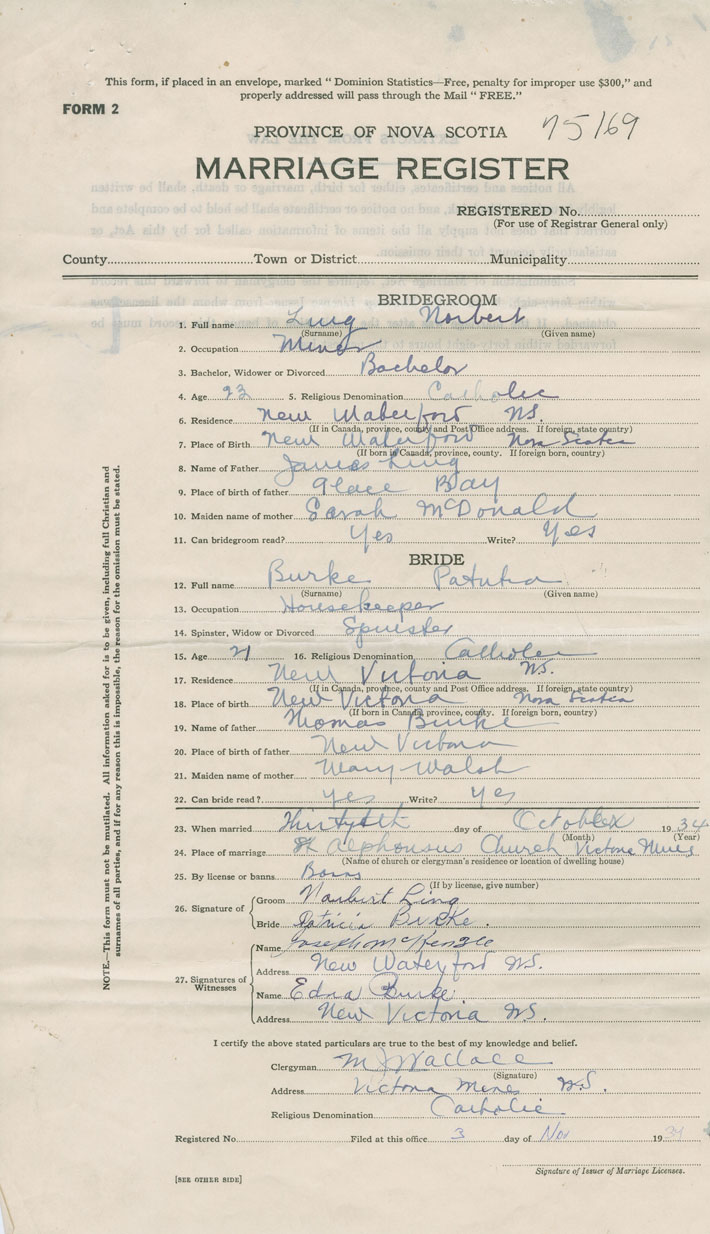 This form, if placed in an envelope, marked " Dominion Statistics—Free, penalty for improper use $300," and
properly addressed will pass through the Mail " FREE."
FORM 2
PROVINCE OF NOVA SCOTIA 75169
MARRIAGE REGISTER
REGISTERED No.
(For use of Registrar General only)
County Town or District Municipality
BRIDEGROOM
1. Full name Ling Norbert
(Surname) (Given name)
2. Occupation Miner
3. Bachelor, Widower or Divorced Bachelor
4. Age 23 5. Religious Denomination Catholic
6. Residence New Waterford N.S.
(If in Canada, province, county and Post Office address. If foreign, state country)
7. Place of Birth New Waterford Nova Scotia
(If born in Canada, province, county. If foreign born, country)
8. Name of Father James Ling
9. Place of birth of father Glace Bay
10. Maiden name of mother Sarah McDonald
11. Can bridegroom read? Yes Write? Yes
BRIDE
12. Full name Burke Patricia
(Surname) (Given name)
13. Occupation Housekeeper
14. Spinster, Widow or Divorced Spinster
15. Age 21 16. Religious Denomination Catholic
17. Residence New Victoria N.S.
(If in Canada, province, county and Post Office address. If foreign, state country)
18. Place of birth New Victoria Nova Scotia
(If born in Canada, province, county. If foreign born, country)
19. Name of father Thomas Burke
20. Place of birth of father New Victoria
21. Maiden name of mother Mary Walsh
22. Can bride read? Yes Write? Yes
23. When married day of October 1934
(Month) (Year)
24. Place of marriage St Alphonsus Church Victoria Mines
(Name of church or clergyman's residence or location of dwelling house)
25. By license or banns Banns
(If by license, give number)
26. Signature of Groom Norbert Ling
Bride Patricia Burke.
27. Signatures of Witnesses Name Joseph McKenzie
Address New Waterford N.S.
Name Edna Burke
Address New Victoria N.S.
I certify the above stated particulars are true to the best of my knowledge and belief.
Clergyman M J Wallace
(Signature)
Address Victoria Mines N.S.
Religious Denomination Catholic
Registered No. Filed at this office 3 day of Nov 1934
Signature of Issuer of Marriage Licenses.
[SEE OTHER SIDE]
NOTE.—This form must not be mutilated. All information asked for is to be given, including full Christian and
surnames of all parties, and if for any reason this is impossible, the reason for the omission must be stated.